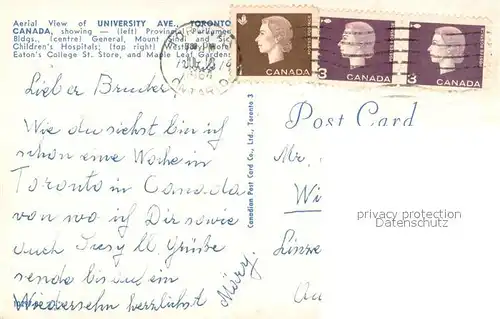 Aerial View of UNIVERSITY AVE., TORONTO
CANADA, showing — (left) Provincial Parliament
Bldgs., (centre) General, Mount Sinai and Sick
Children's Hospitals; (top right) Western
Eaton's College St. Store, and Maple Leaf Gardens
CANADA
3 CANADA
3 CANADA
Lieber Bruder
Wie du siehst bin ich
schon eine Woche in
Toronto in Canada
von wo ich Dir sowie
auch Grüsse
sende bis auf ein
Wiedersehn herzlichst
Märy.
Canadian Post Card Co., Ltd., Toronto 3
Post Card
Mr.
Wi
Linze
privacy protection
watermark